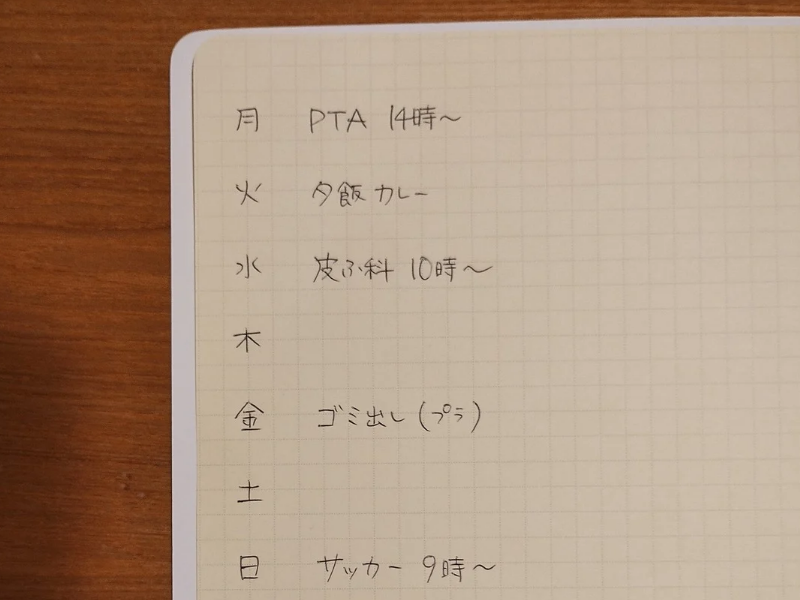 月 PTA 14時～
火 夕飯 カレー
水 皮ふ科 10時～
木
金 ゴミ出し(プラ)
土
日 サッカー 9時～